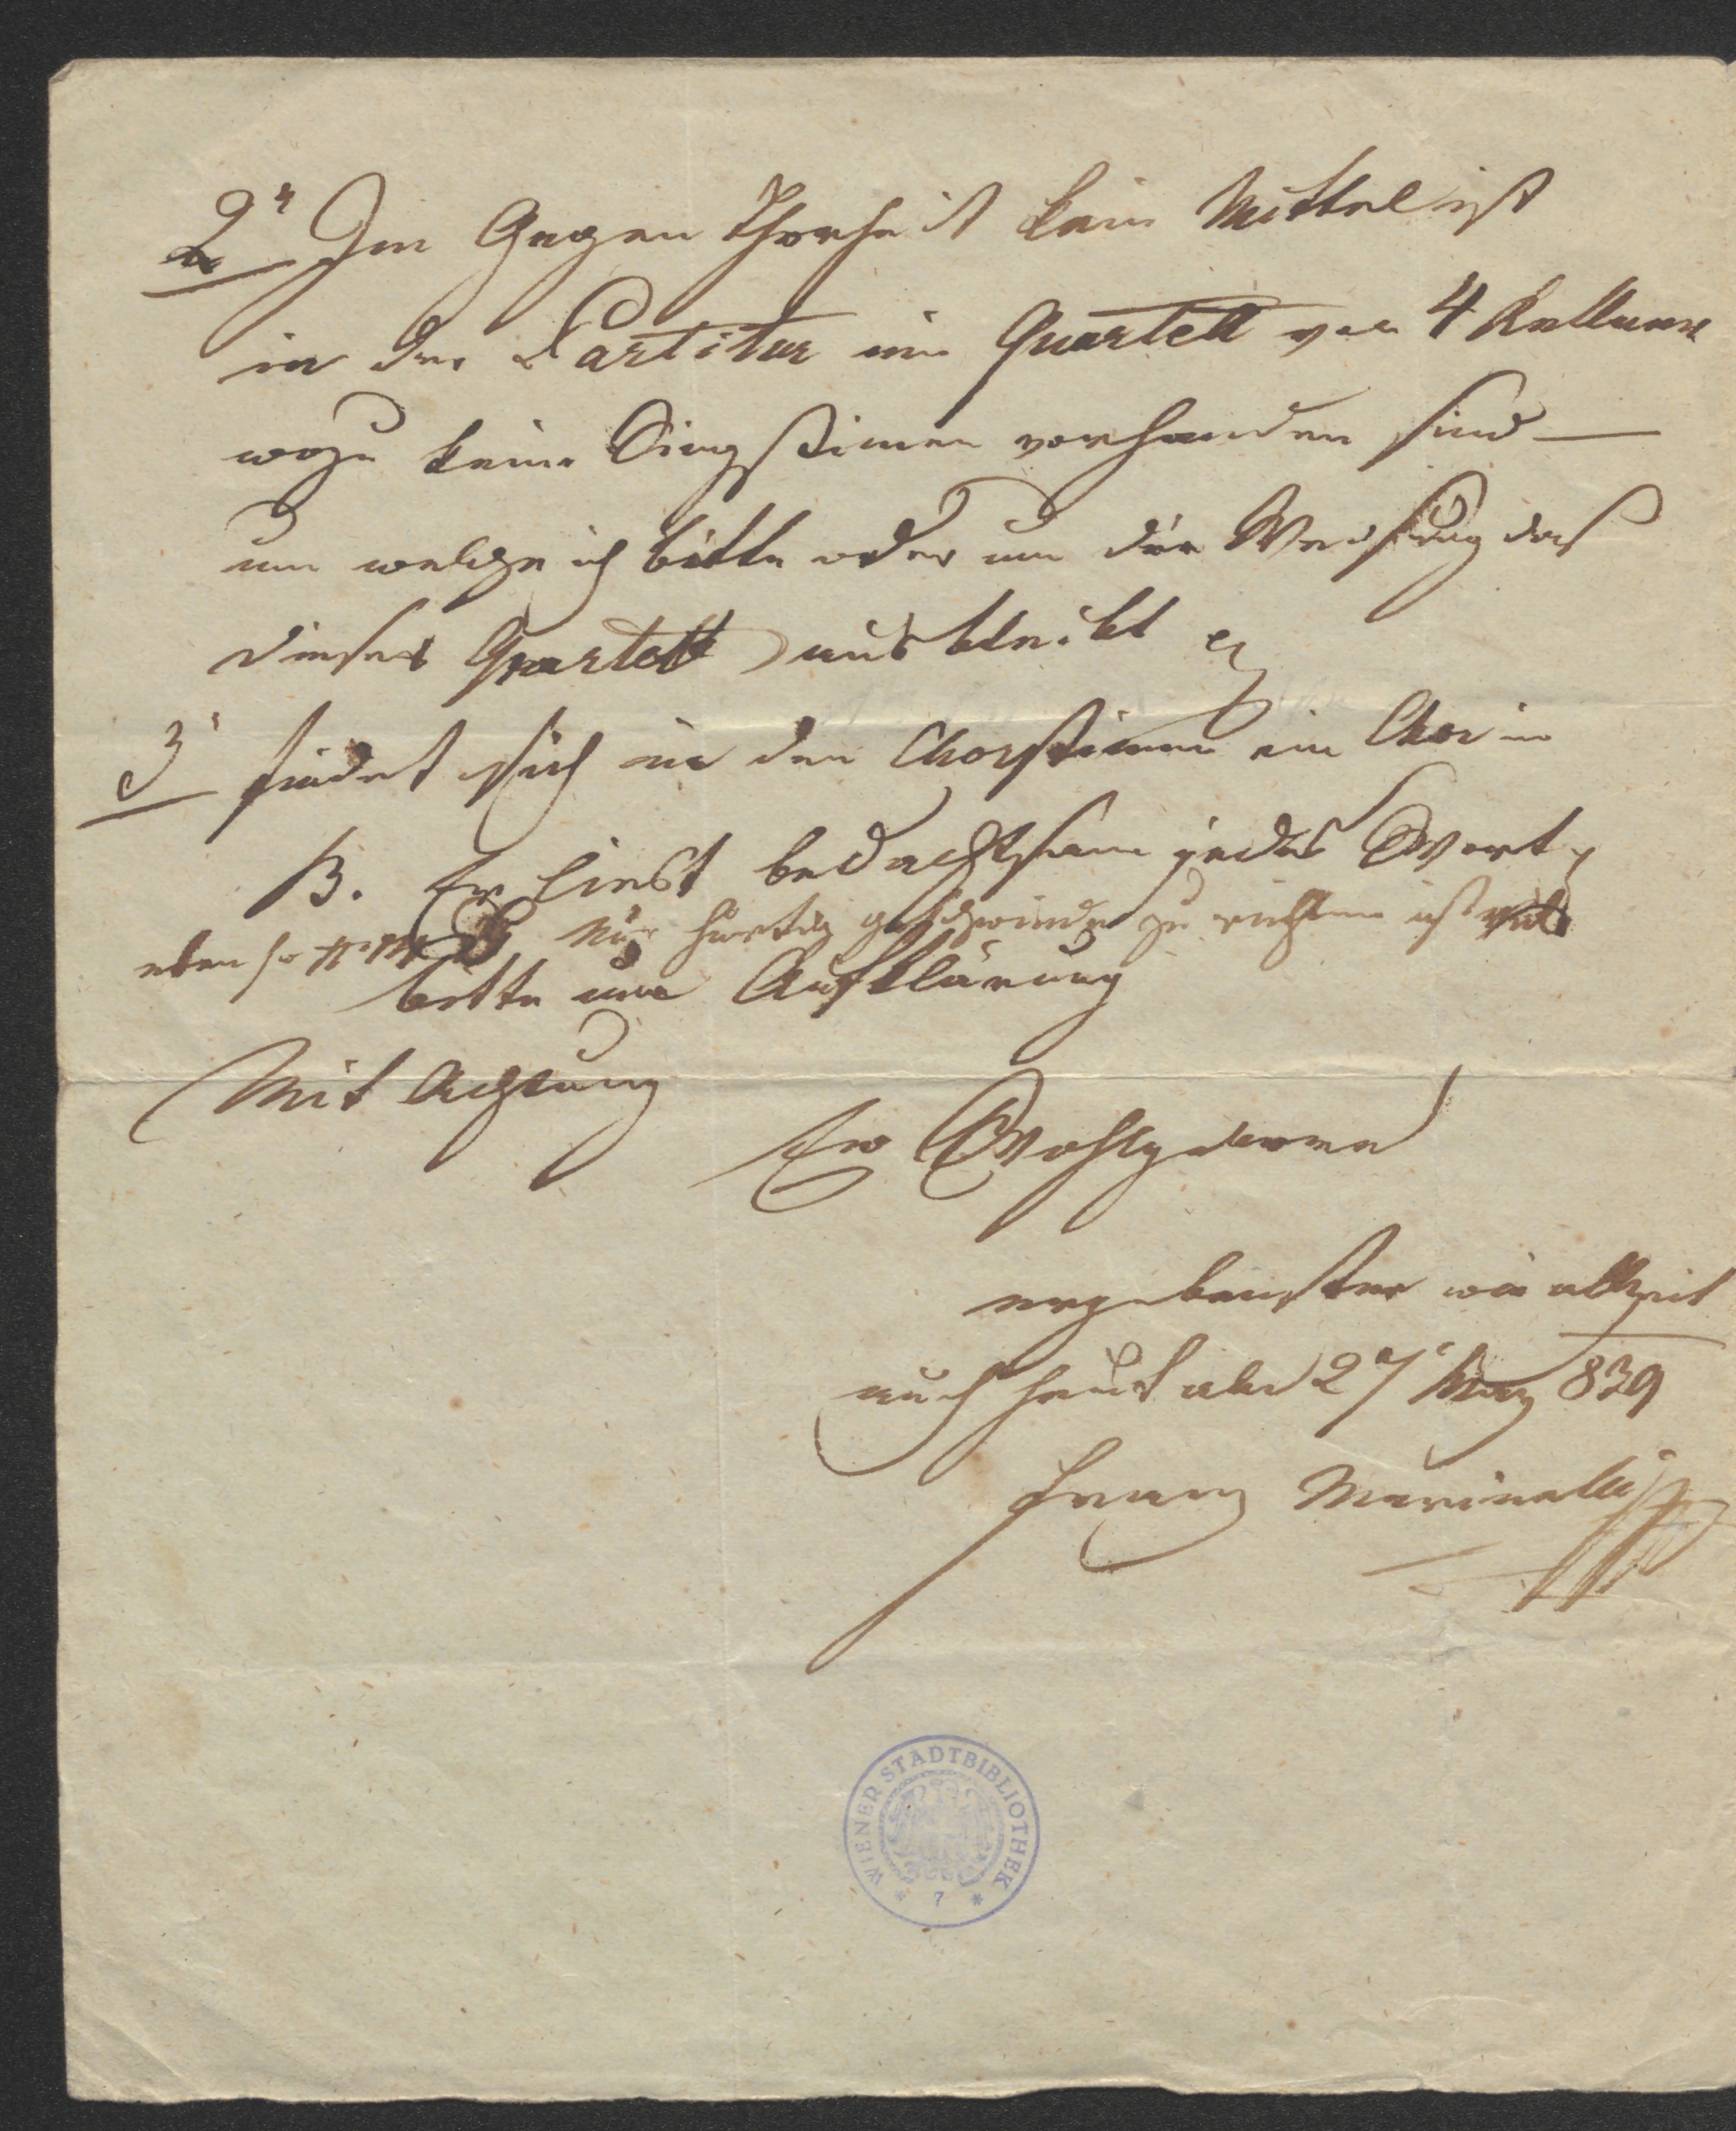 2tens Im Gegen Thorheit kein Mittel ist
in der Partitur ein Quartett von 4 Kellnern
wozu keine Singstimen vorhanden sind —
um welche ich bitte oder um die Weisung das
dieses Quartett ausbleibt
3t findet sich in den Chorstimen ein Chor in
B. Er liest bedachtsam jedes Wort
eben so Nur hurtig geschwinde zu richten ist
bitte um Aufklärung
Mit Achtung
Ew Wohlgeboren
ergebenster wie allzeit
auch heut als 27t May 839
Franz Marinelli
WIENER STADTBIBLIOTHEK
* 7 *